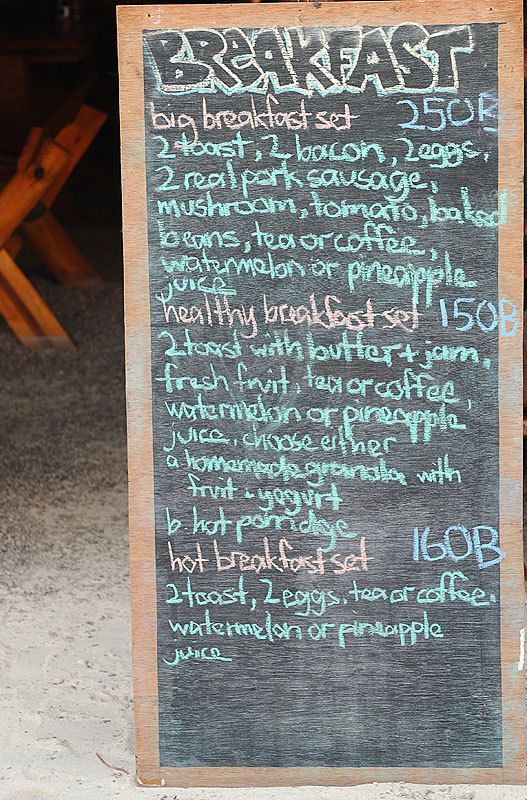 BREAKFAST
big breakfast set 250B
2 toast, 2 bacon, 2 eggs,
2 real pork sausage,
mushroom, tomato, baked
beans, tea or coffee,
watermelon or pineapple
juice
healthy breakfast set 150B
2 toast with butter + jam,
fresh fruit, tea or coffee,
watermelon or pineapple
juice, choose either
a homemade granola with
fruit + yogurt
b hot porridge
hot breakfast set 160B
2 toast, 2 eggs, tea or coffee,
watermelon or pineapple
juice